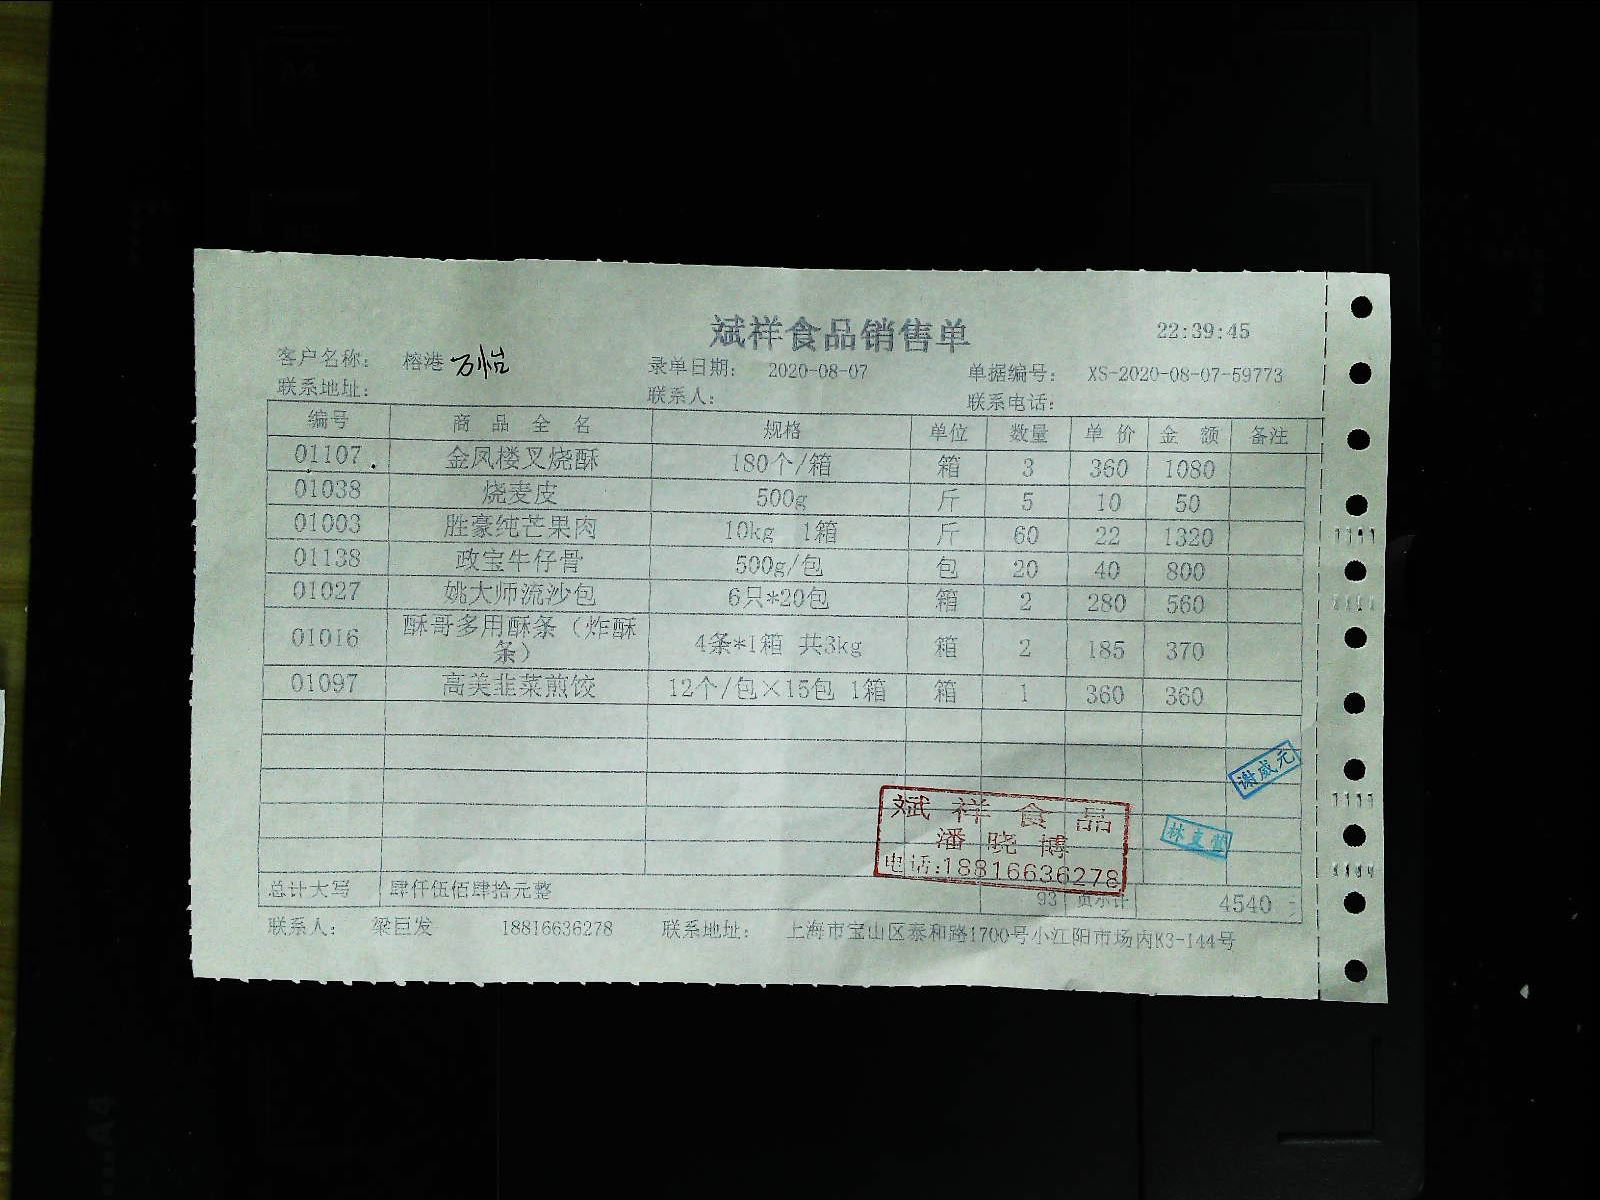 斌祥食品销售单 22:39:45
客户名称： 榕港 万怡 录单日期： 2020-08-07 单据编号： XS-2020-08-07-59773
联系地址： 联系人： 联系电话：
编号 商品全名 规格 单位 数量 单价 金额 备注
01107 金凤楼叉烧酥 180个/箱 箱 3 360 1080
01038 烧麦皮 500g 斤 5 10 50
01003 胜豪纯芒果肉 10kg 1箱 斤 60 22 1320
01138 政宝牛仔骨 500g/包 包 20 40 800
01027 姚大师流沙包 6只*20包 箱 2 280 560
01016 酥哥多用酥条（炸酥
条） 4条*1箱 共3kg 箱 2 185 370
01097 高美韭菜煎饺 12个/包×15包 1箱 箱 1 360 360
谢威元
斌祥食品
潘晓博
电话:18816636278
总计大写 肆仟伍佰肆拾元整 93 页小计 4540
联系人： 梁巨发 18816636278 联系地址： 上海市宝山区泰和路1700号小江阳市场内K3-144号